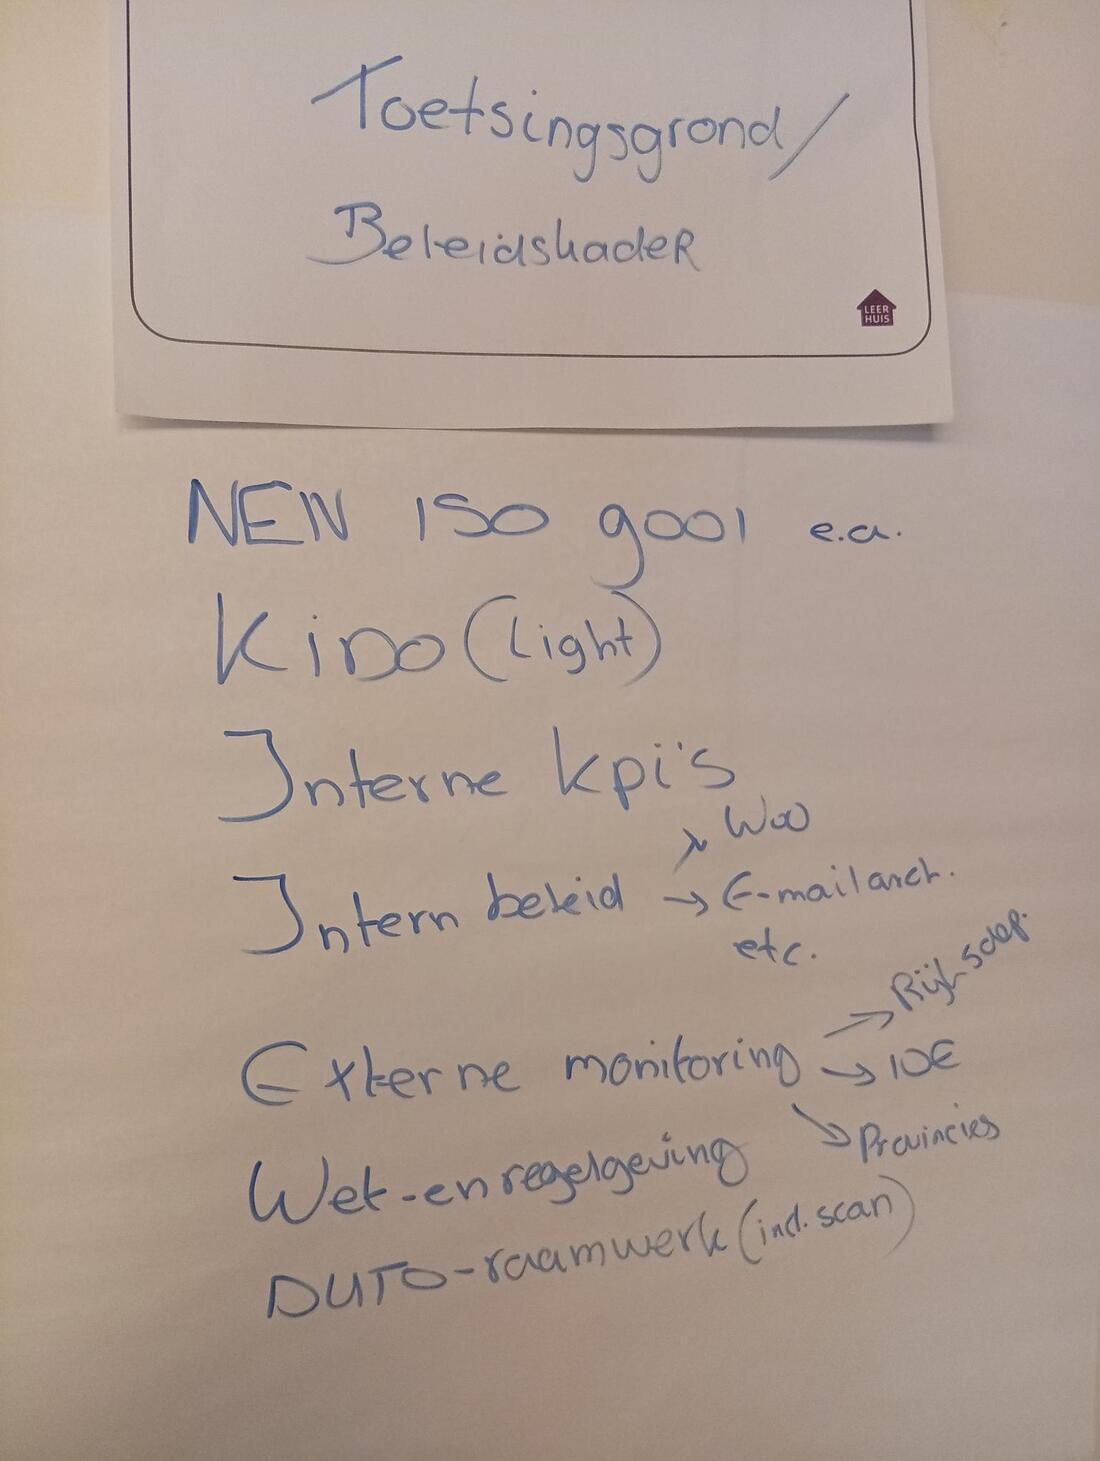 Toetsingsgrond/
Beleidskader
LEER
HUIS
NEN ISO 9001 e.a.
KIDO (light)
Interne kpi's
Intern beleid → Woo
→ E-mailarch.
etc.
Externe monitoring → Rijksdep.
→ IOE
→ Provincies
Wet-en regelgeving
DUTO-raamwerk (incl. scan)